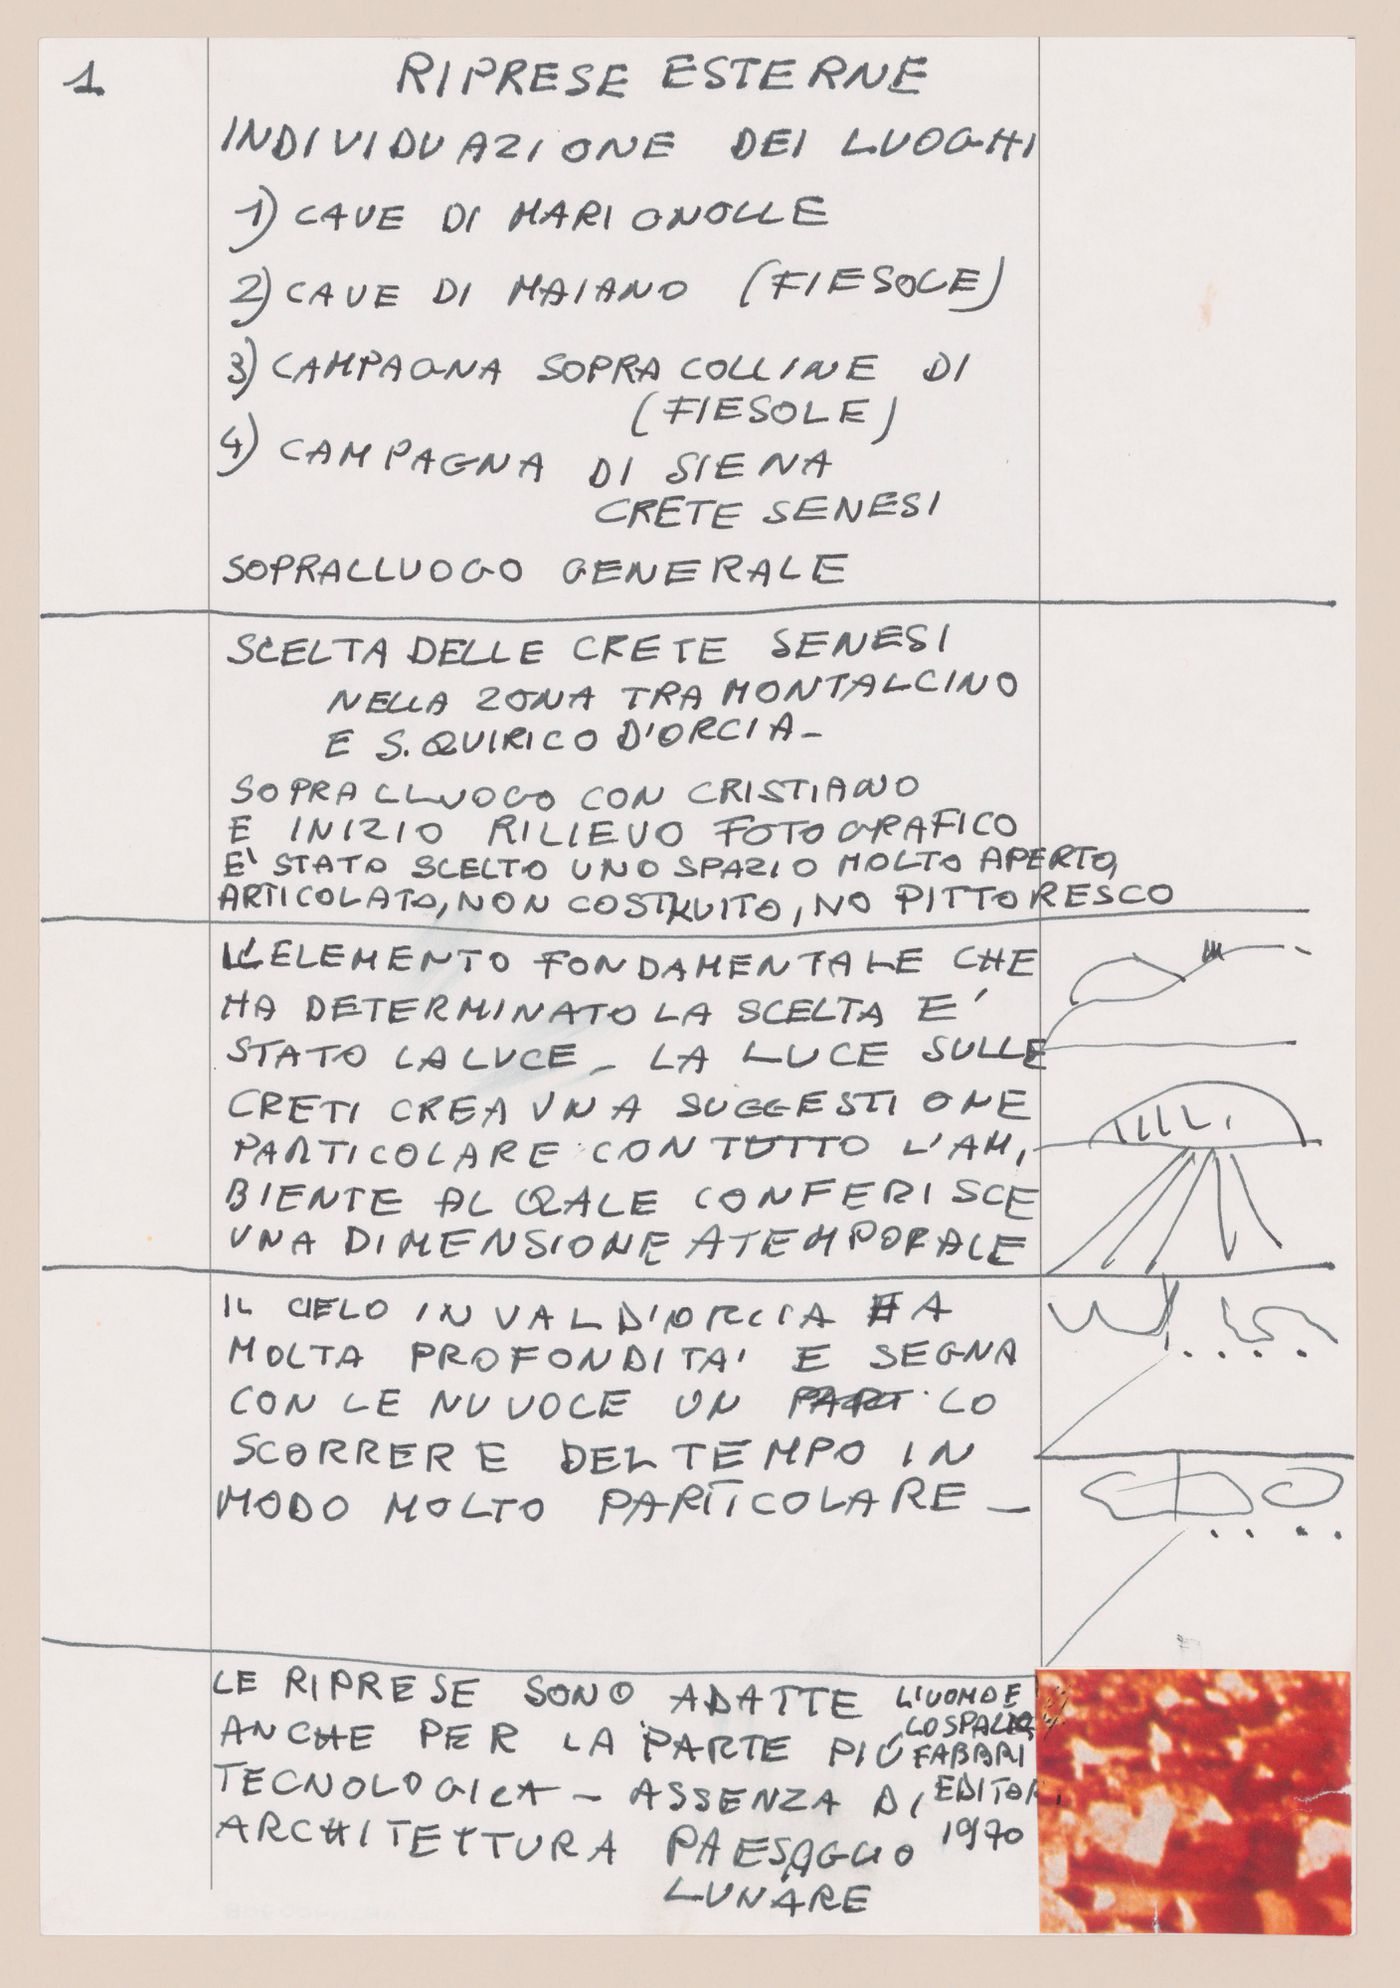 1
RIPRESE ESTERNE
INDIVIDUAZIONE DEI LUOGHI
1) CAVE DI MARIONOLLE
2) CAVE DI MAIANO (FIESOLE)
3) CAMPAGNA SOPRA COLLINE DI
(FIESOLE)
4) CAMPAGNA DI SIENA
CRETE SENESI
SOPRALLUOGO GENERALE
SCELTA DELLE CRETE SENESI
NELLA ZONA TRA MONTALCINO
E S. QUIRICO D'ORCIA –
SOPRALLUOGO CON CRISTIANO
E INIZIO RILIEVO FOTOGRAFICO
E' STATO SCELTO UNO SPAZIO MOLTO APERTO,
ARTICOLATO, NON COSTRUITO, NO PITTORESCO
L'ELEMENTO FONDAMENTALE CHE
HA DETERMINATO LA SCELTA E'
STATO LA LUCE – LA LUCE SULLE
CRETI CREA UNA SUGGESTIONE
PARTICOLARE CON TUTTO L'AM,
BIENTE AL QALE CONFERISCE
UNA DIMENSIONE ATEMPORALE
IL CIELO IN VAL D'ORCIA HA
MOLTA PROFONDITA' E SEGNA
CON LE NUVOLE UN PART LO
SCORRERE DEL TEMPO IN
MODO MOLTO PARTICOLARE –
LE RIPRESE SONO ADATTE
ANCHE PER LA PARTE PIÙ
TECNOLOGICA – ASSENZA DI
ARCHITETTURA PAESAGGIO
LUNARE
L'UOMO E
LO SPAZIO
FABBRI
EDITORI
1970